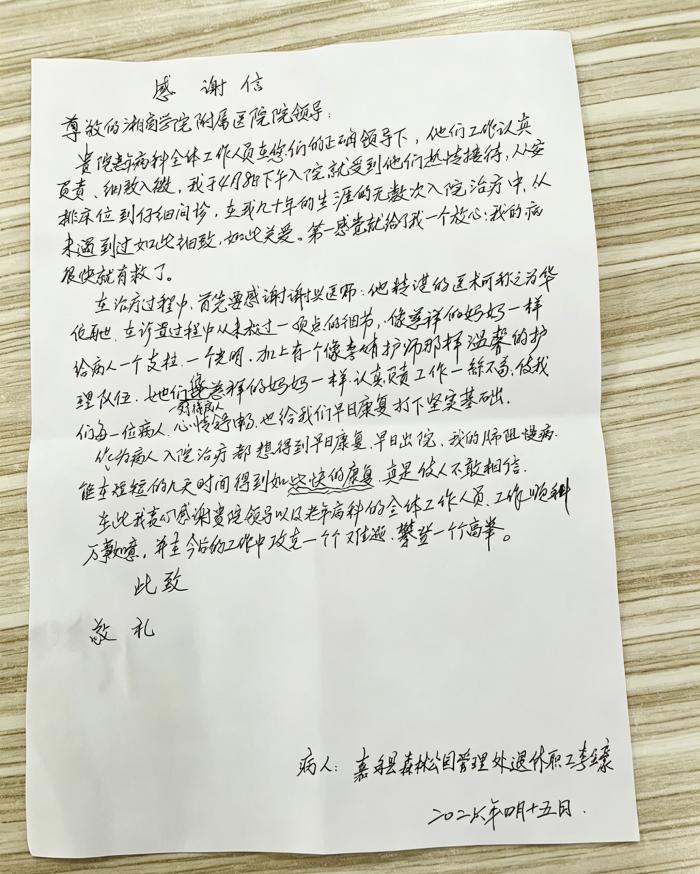 感谢信
尊敬的湘南学院附属医院院领导:
贵院老年病科全体工作人员在您们的正确领导下,他们工作认真
负责、细致入微,我于4月8日下午入院就受到他们热情接待,从安
排床位到仔细问诊,在我九十年的生涯的无数次入院治疗中,从
未遇到过如此细致,如此关爱。第一感觉就给了我一个放心:我的病
很快就有救了。
在治疗过程中,首先要感谢谢兴医师:他精湛的医术可称之为华
佗再世.在诊查过程中从未放过一项点的细节,像慈祥的妈妈一样
给病人一个支柱.一个光明.加上有个像李婧护师那样温馨的护
理队伍.她们像慈祥的妈妈一样.认真负责工作一丝不苟.使我
对待病人
们每一位病人.心情舒畅.也给我们早日康复打下坚实基础.
作为病人入院治疗都想得到早日康复.早日出院.我的肺阻慢病.
能在短短的九天时间得到如此快的康复.真是使人不敢相信.
在此我衷心感谢贵院领导以及老年病科的全体工作人员.工作顺利
万事如意,并在今后的工作中攻克一个个难题.攀登一个个高峰。
此致
敬礼
病人:嘉禾县森林公园管理处退休职工李
二〇二六年四月十五日.